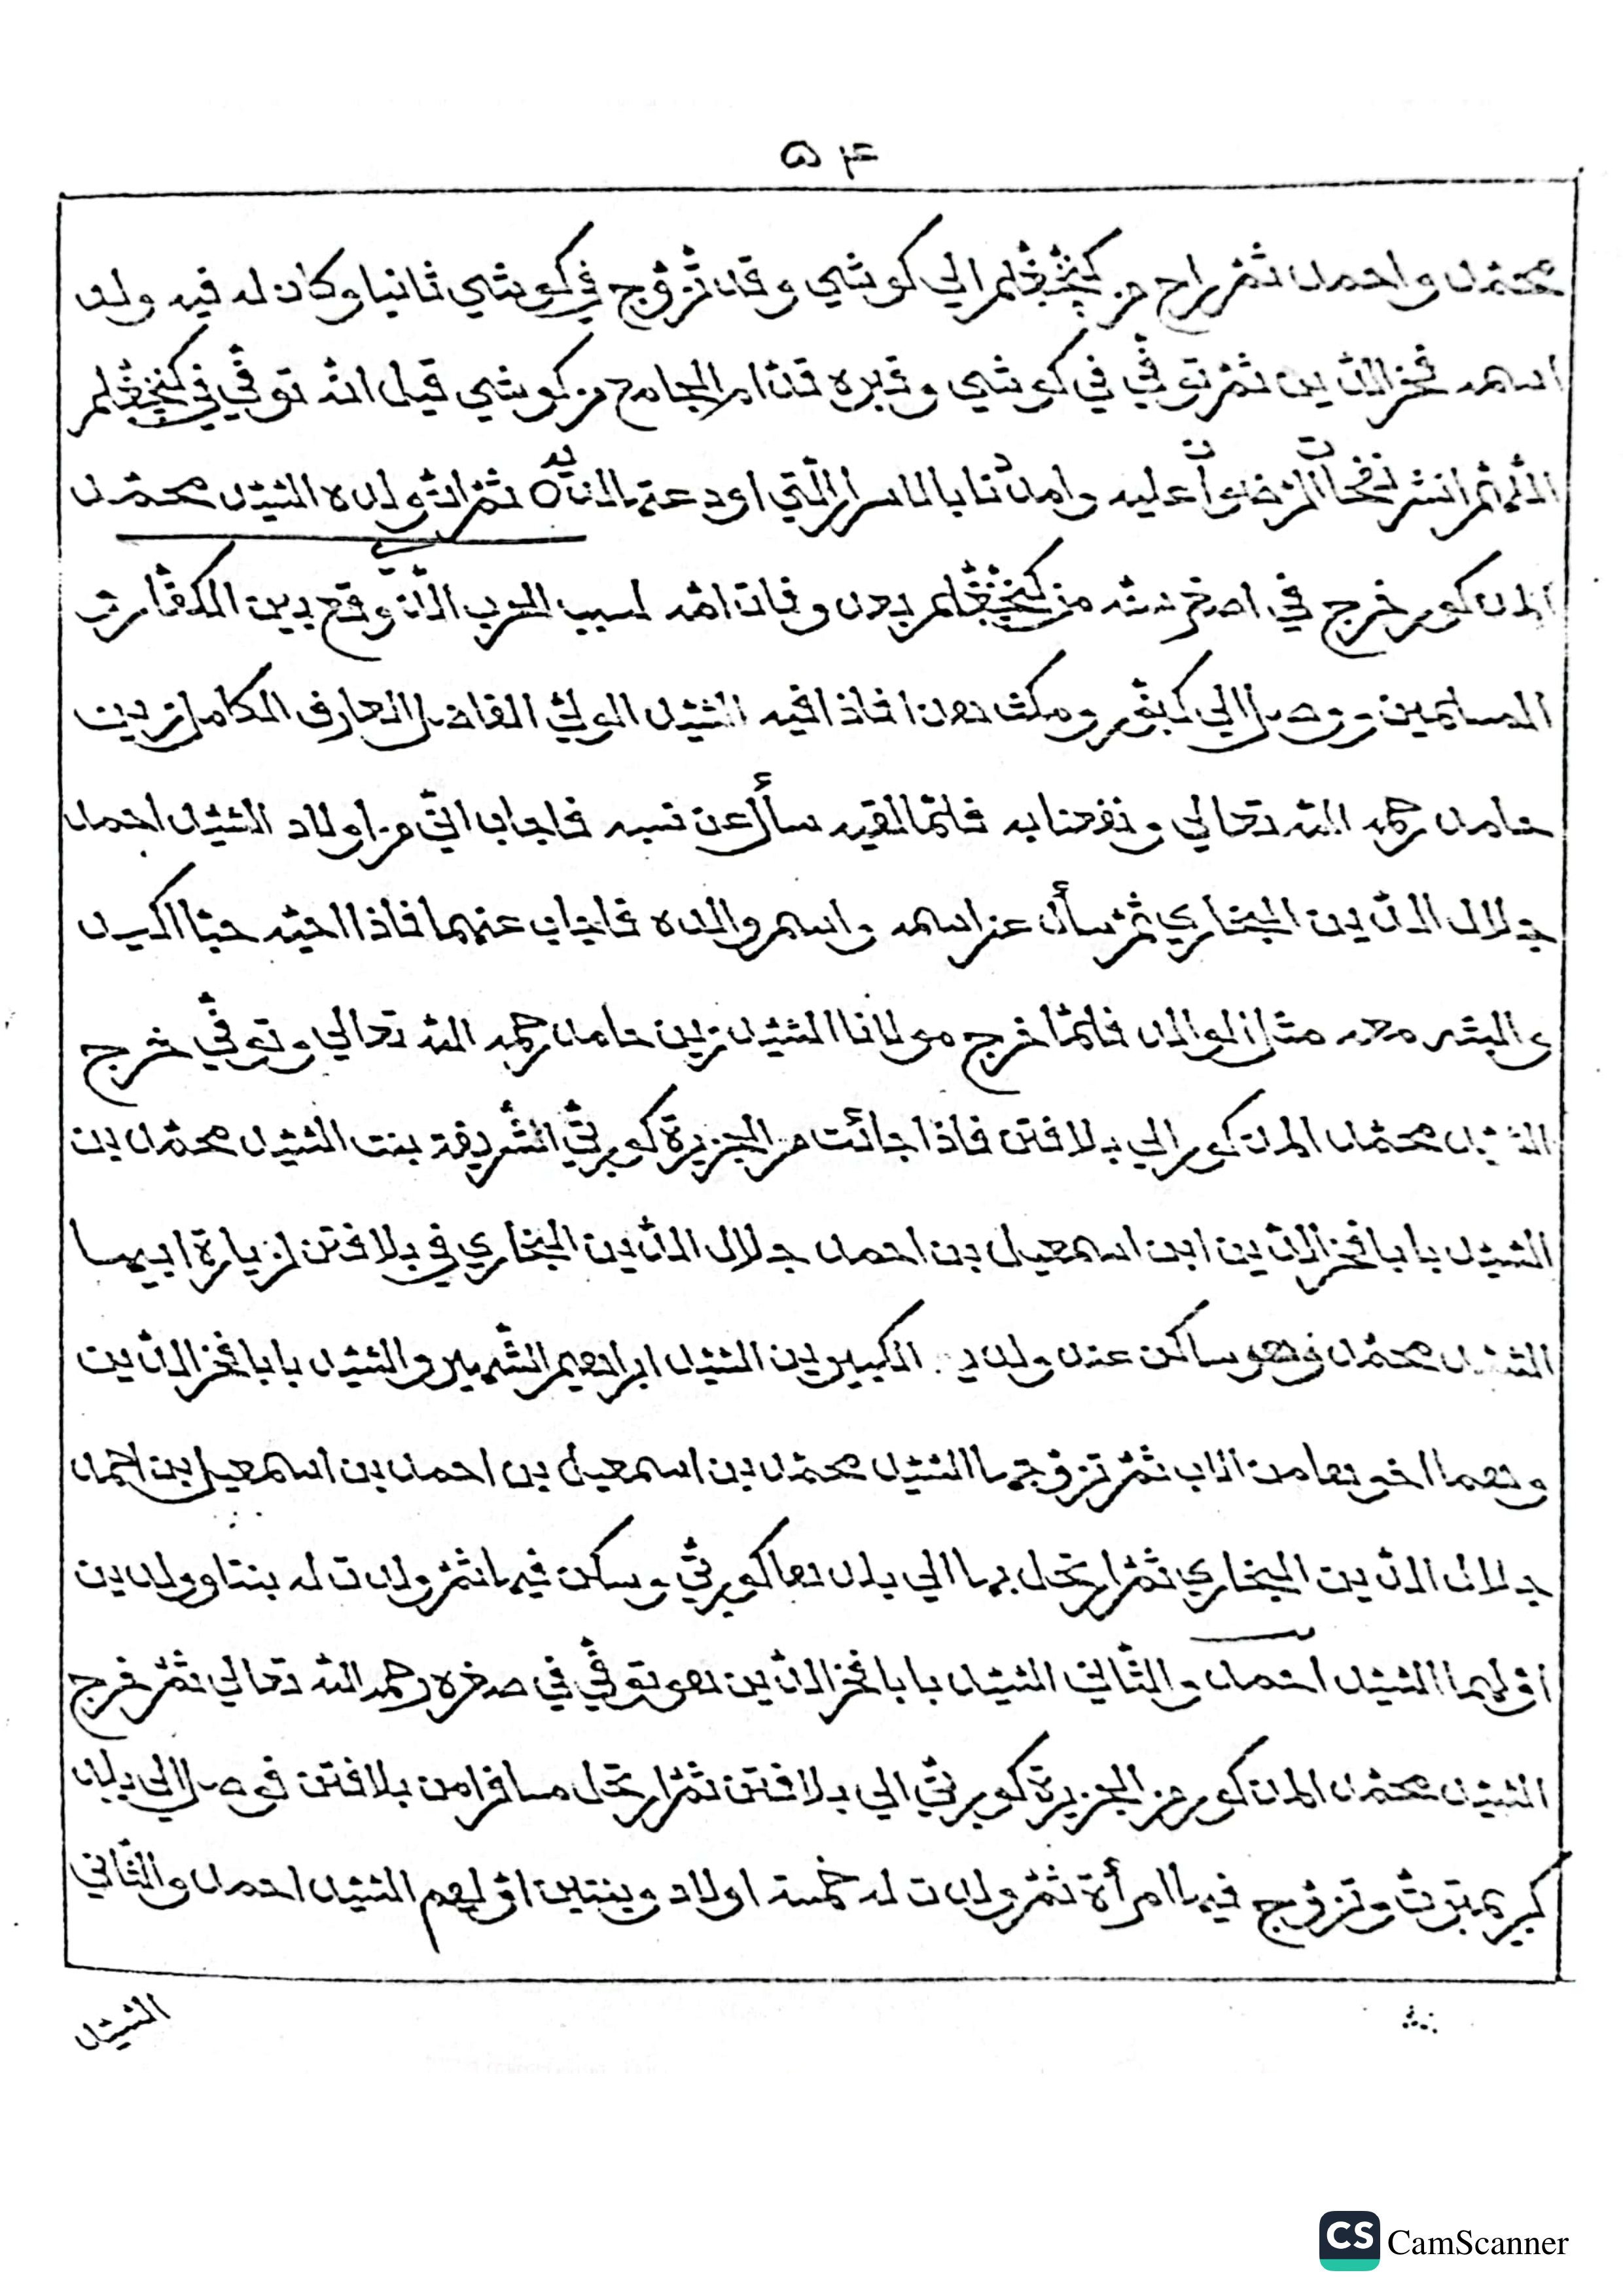 ٥٤
محمّد واحمد ثمّ راح من كنجغلم الي كوشي وقد تزوّج في كوشي ثانيا وكان له فيه ولد
اسمه فخر الدّين ثمّ توفّي في كوشي وقبره قدّام الجامع من كوشي قيل انّه توفّي في كنجغلم
اللّهم انشر نفحات الرّضوان عليه وامدّنا بالاسرار الّتي اودعتها لديه ثمّ انّ ولده السّيّد محمّد
المذكور خرج في اصغر سنّه من كنجغلم بعد وفات امّه لسبب الحرب الّذي وقع بين الكفّار و
المسلمين ووصل الي كبقّر ومكث هنا فاذا فيه السّيّد الوليّ الفاضل العارف الكامل زين
حامد رحمه اللّه تعالي ونفعنا به فلمّا لقيه سأل عن نسبه فاجاب انّي من اولاد السّيّد احمد
جلال الدّين البخاري ثمّ سأل عن اسمه واسم والده فاجاب عنهما فاذا احبّه حبّا اكيد
والبثه معه مثل الوالد فلمّا خرج مولانا السّيّد زين حامد رحمه اللّه تعالي وتوفّي خرج
السّيّد محمّد المذكور الي بلافتن فاذا جائت من الجزيرة كورتّي الشّريفة بنت السّيّد محمّد بن
السّيّد بابا فخر الدّين ابن اسمعيل بن احمد جلال الدّين البخاري في بلافتن لزيارة ابيها
السّيّد محمّد وهو ساكن عند ولديه الكبيرين السّيّد ابراهيم الشّهير والسّيّد بابا فخر الدّين
وهما اخوها من الاب ثمّ تزوّجها السّيّد محمّد بن اسمعيل بن احمد بن اسمعيل بن احمد
جلال الدّين البخاري ثمّ ارتحل بها الي بلدها كورتّي وسكن فيها ثمّ ولدت له بنتا وولدين
اوّلهما السّيّد احمد والثّاني السّيّد بابا فخر الدّين هو توفّي في صغره رحمه اللّه تعالي ثمّ خرج
السّيّد محمّد المذكور من الجزيرة كورتّي الي بلافتن ثمّ ارتحل مسافرا من بلافتن فوصل الي بلد
وتزوّج فيها امرأة ثمّ ولدت له خمسة اولاد وبنتين اوّلهم السّيّد احمد والثّاني
السّيّد
CS CamScanner